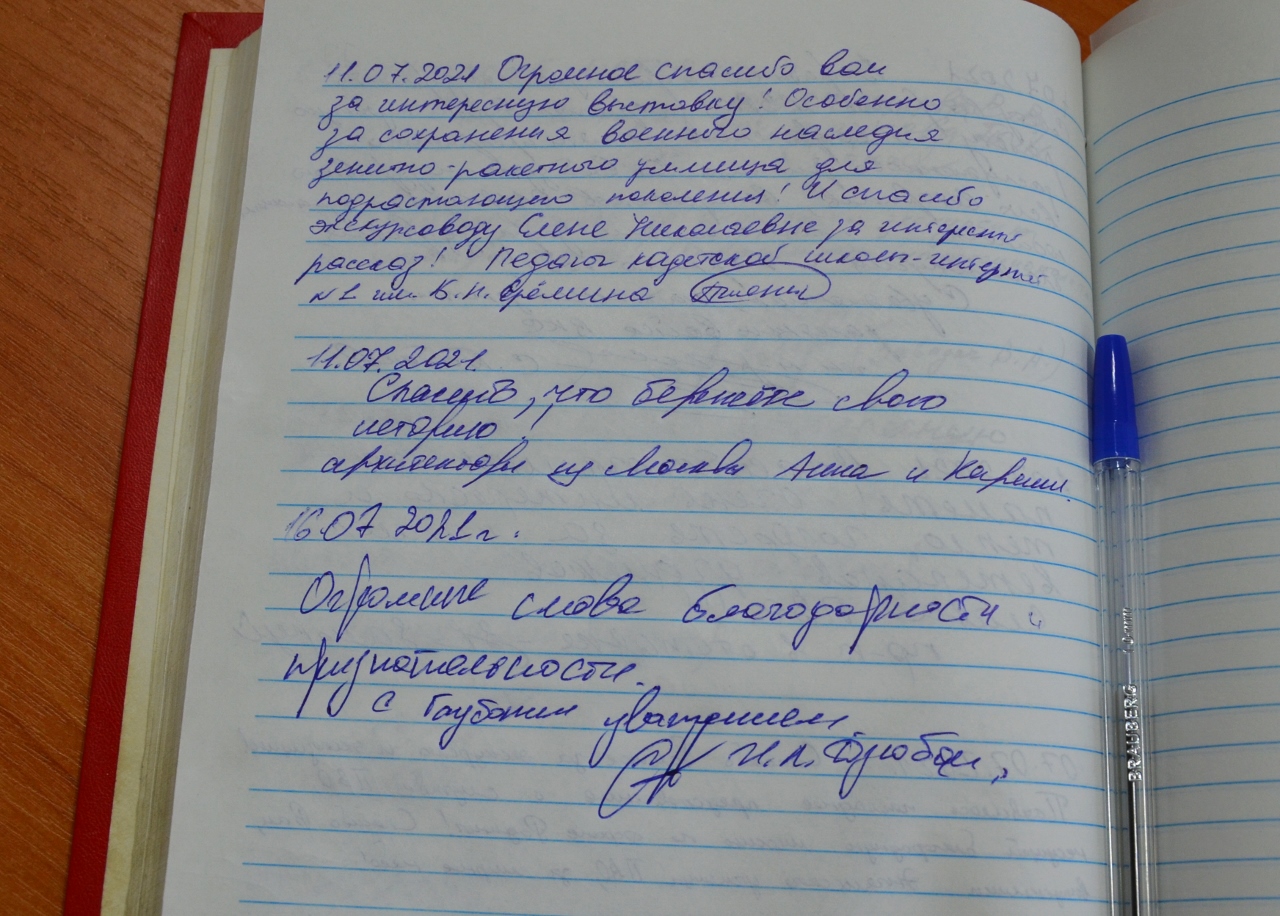 11.07.2021 Огромное спасибо вам
за интересную выставку! Особенно
за сохранения военного наследия
зенитно-ракетного училища для
подрастающего поколения! И спасибо
экскурсоводу Елене Николаевне за интересный
рассказ! Педагог кадетской школы-интернат
№1 им. В.П. Ерёмина
11.07.2021.
Спасибо, что бережёте свою
историю!
архитекторы из Москвы Анна и Карен
16.07 2021г.
Огромные слова благодарности и
признательности.
С глубоким уважением
BRAUBERG 1,0 mm